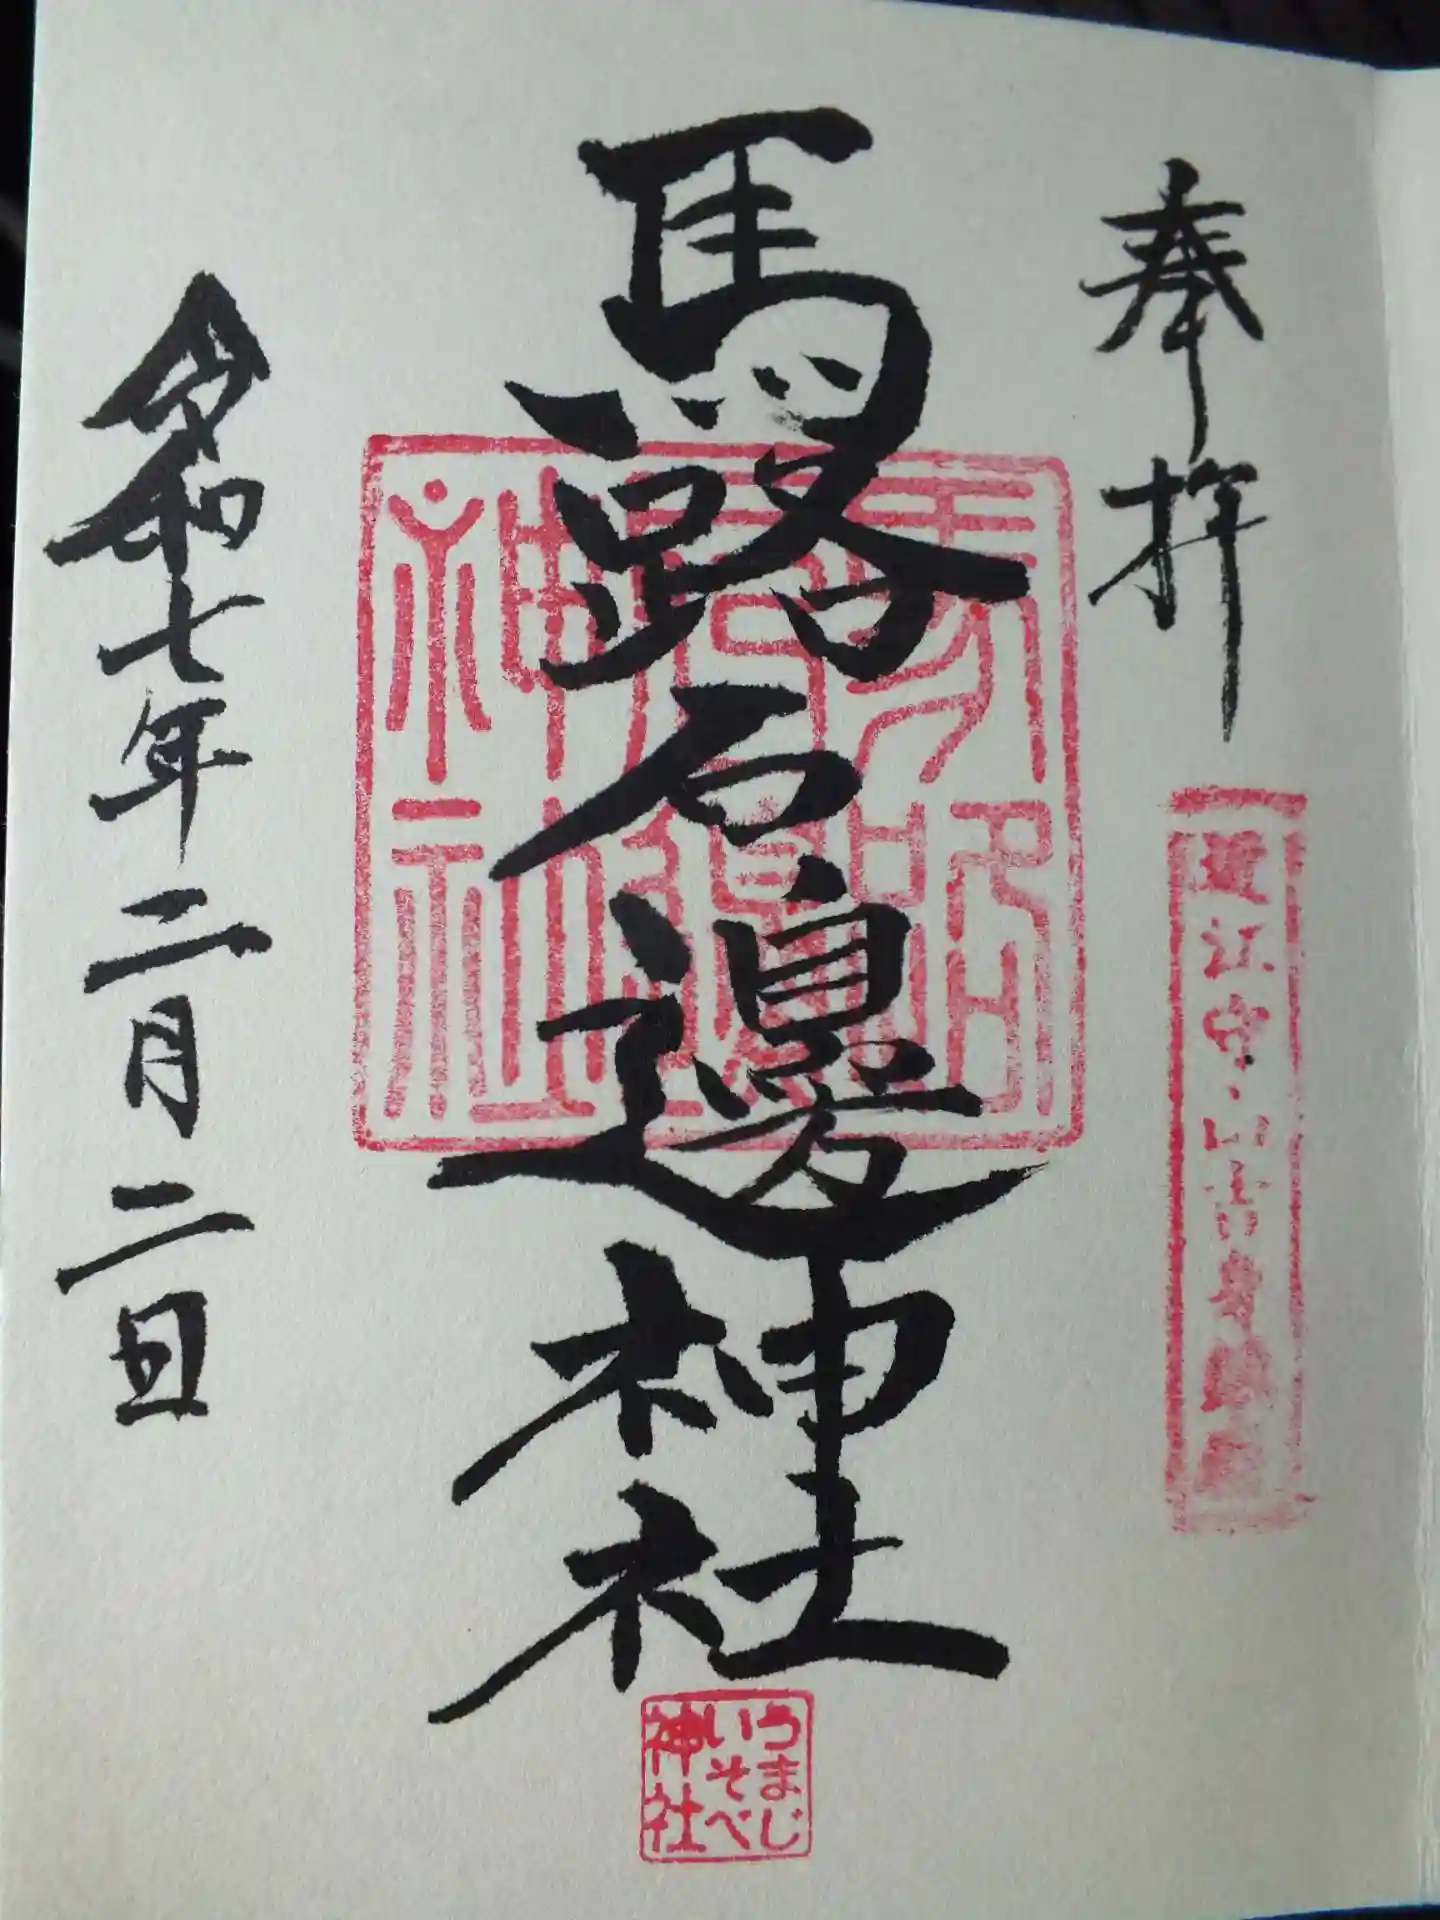 奉拝
近江守山吉身
馬路石邊神社
馬路石邊神社
うまじ
いそべ
神社
令和七年二月二日